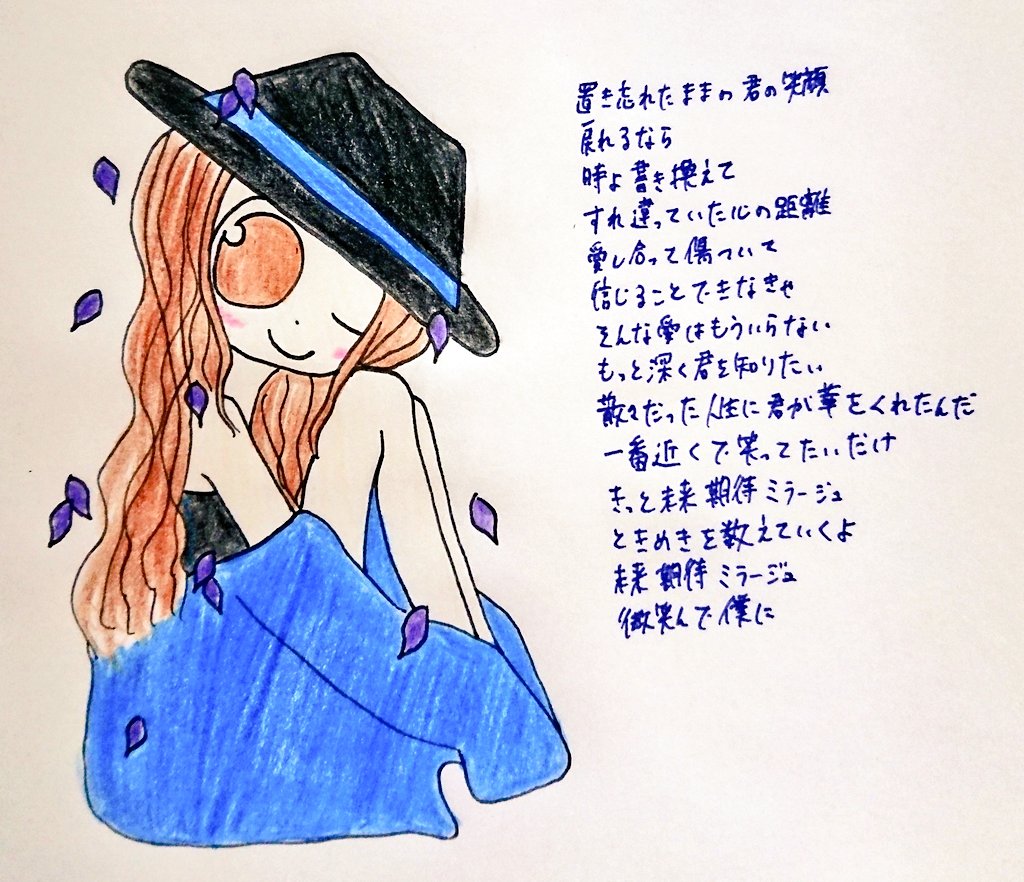 置き忘れたままの君の笑顔
戻れるなら
時よ書き換えて
すれ違っていた心の距離
愛し合って傷ついて
信じることできなきゃ
そんな愛はもういらない
もっと深く君を知りたい
散々だった人生に君が華をくれたんだ
一番近くで笑ってたいだけ
きっと未来期待ミラージュ
ときめきを数えていくよ
未来期待ミラージュ
微笑んで僕に